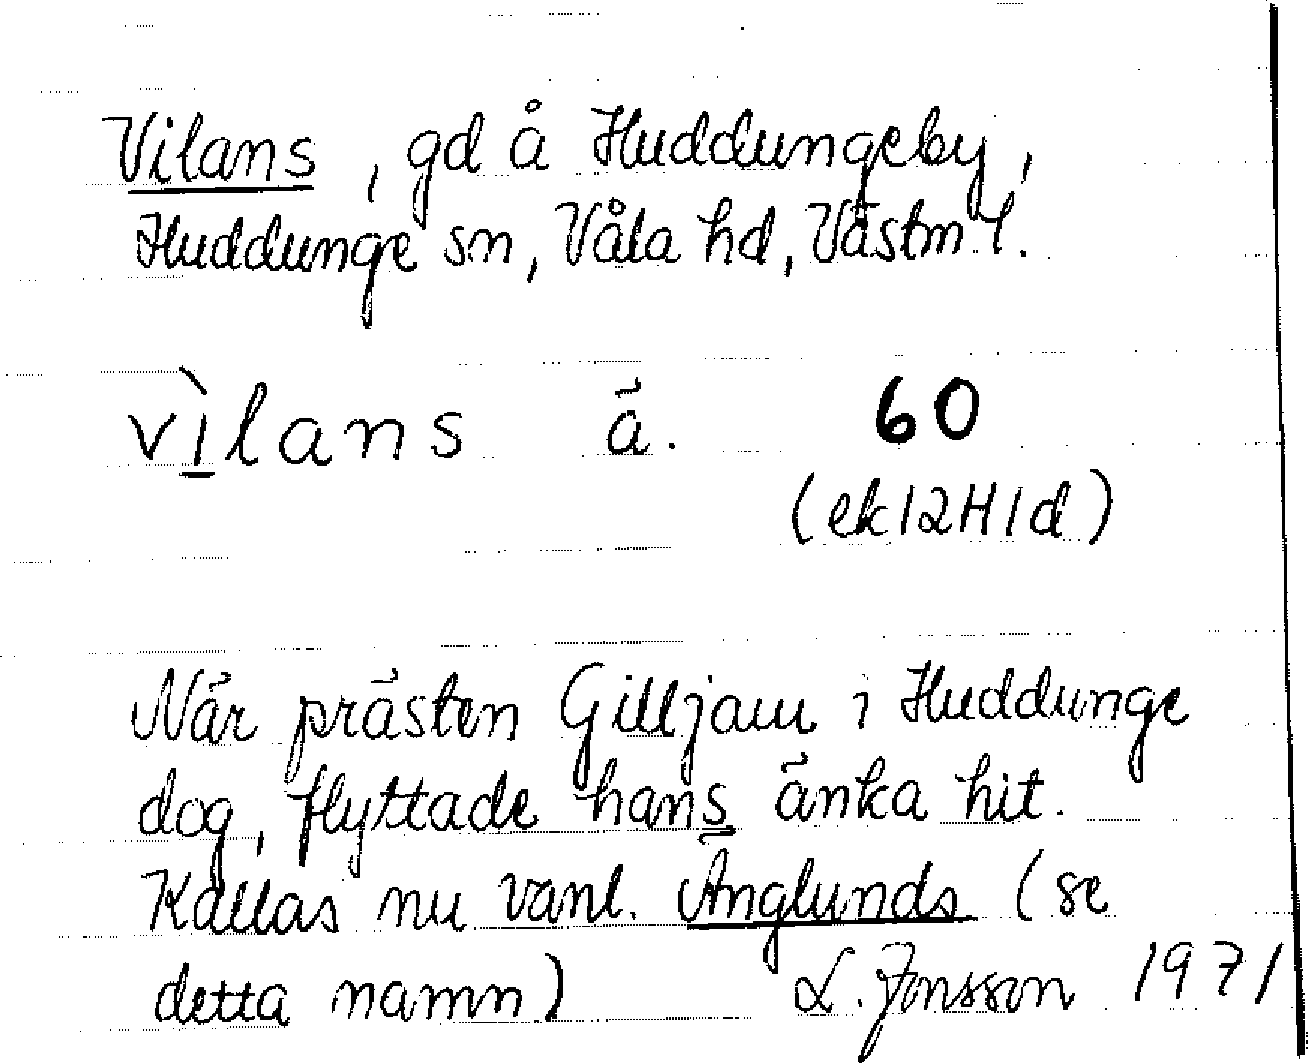 Vilans, gd å Huddungeby,
Huddunge sn, Våla hd, Västm l.
vìlans ã. 60
(ek 12H1d)
När prästen Gilljam i Huddunge
dog, flyttade hans änka hit.
Kallas nu vanl. Änglunds (se
detta namn) L. Jonsson 1971